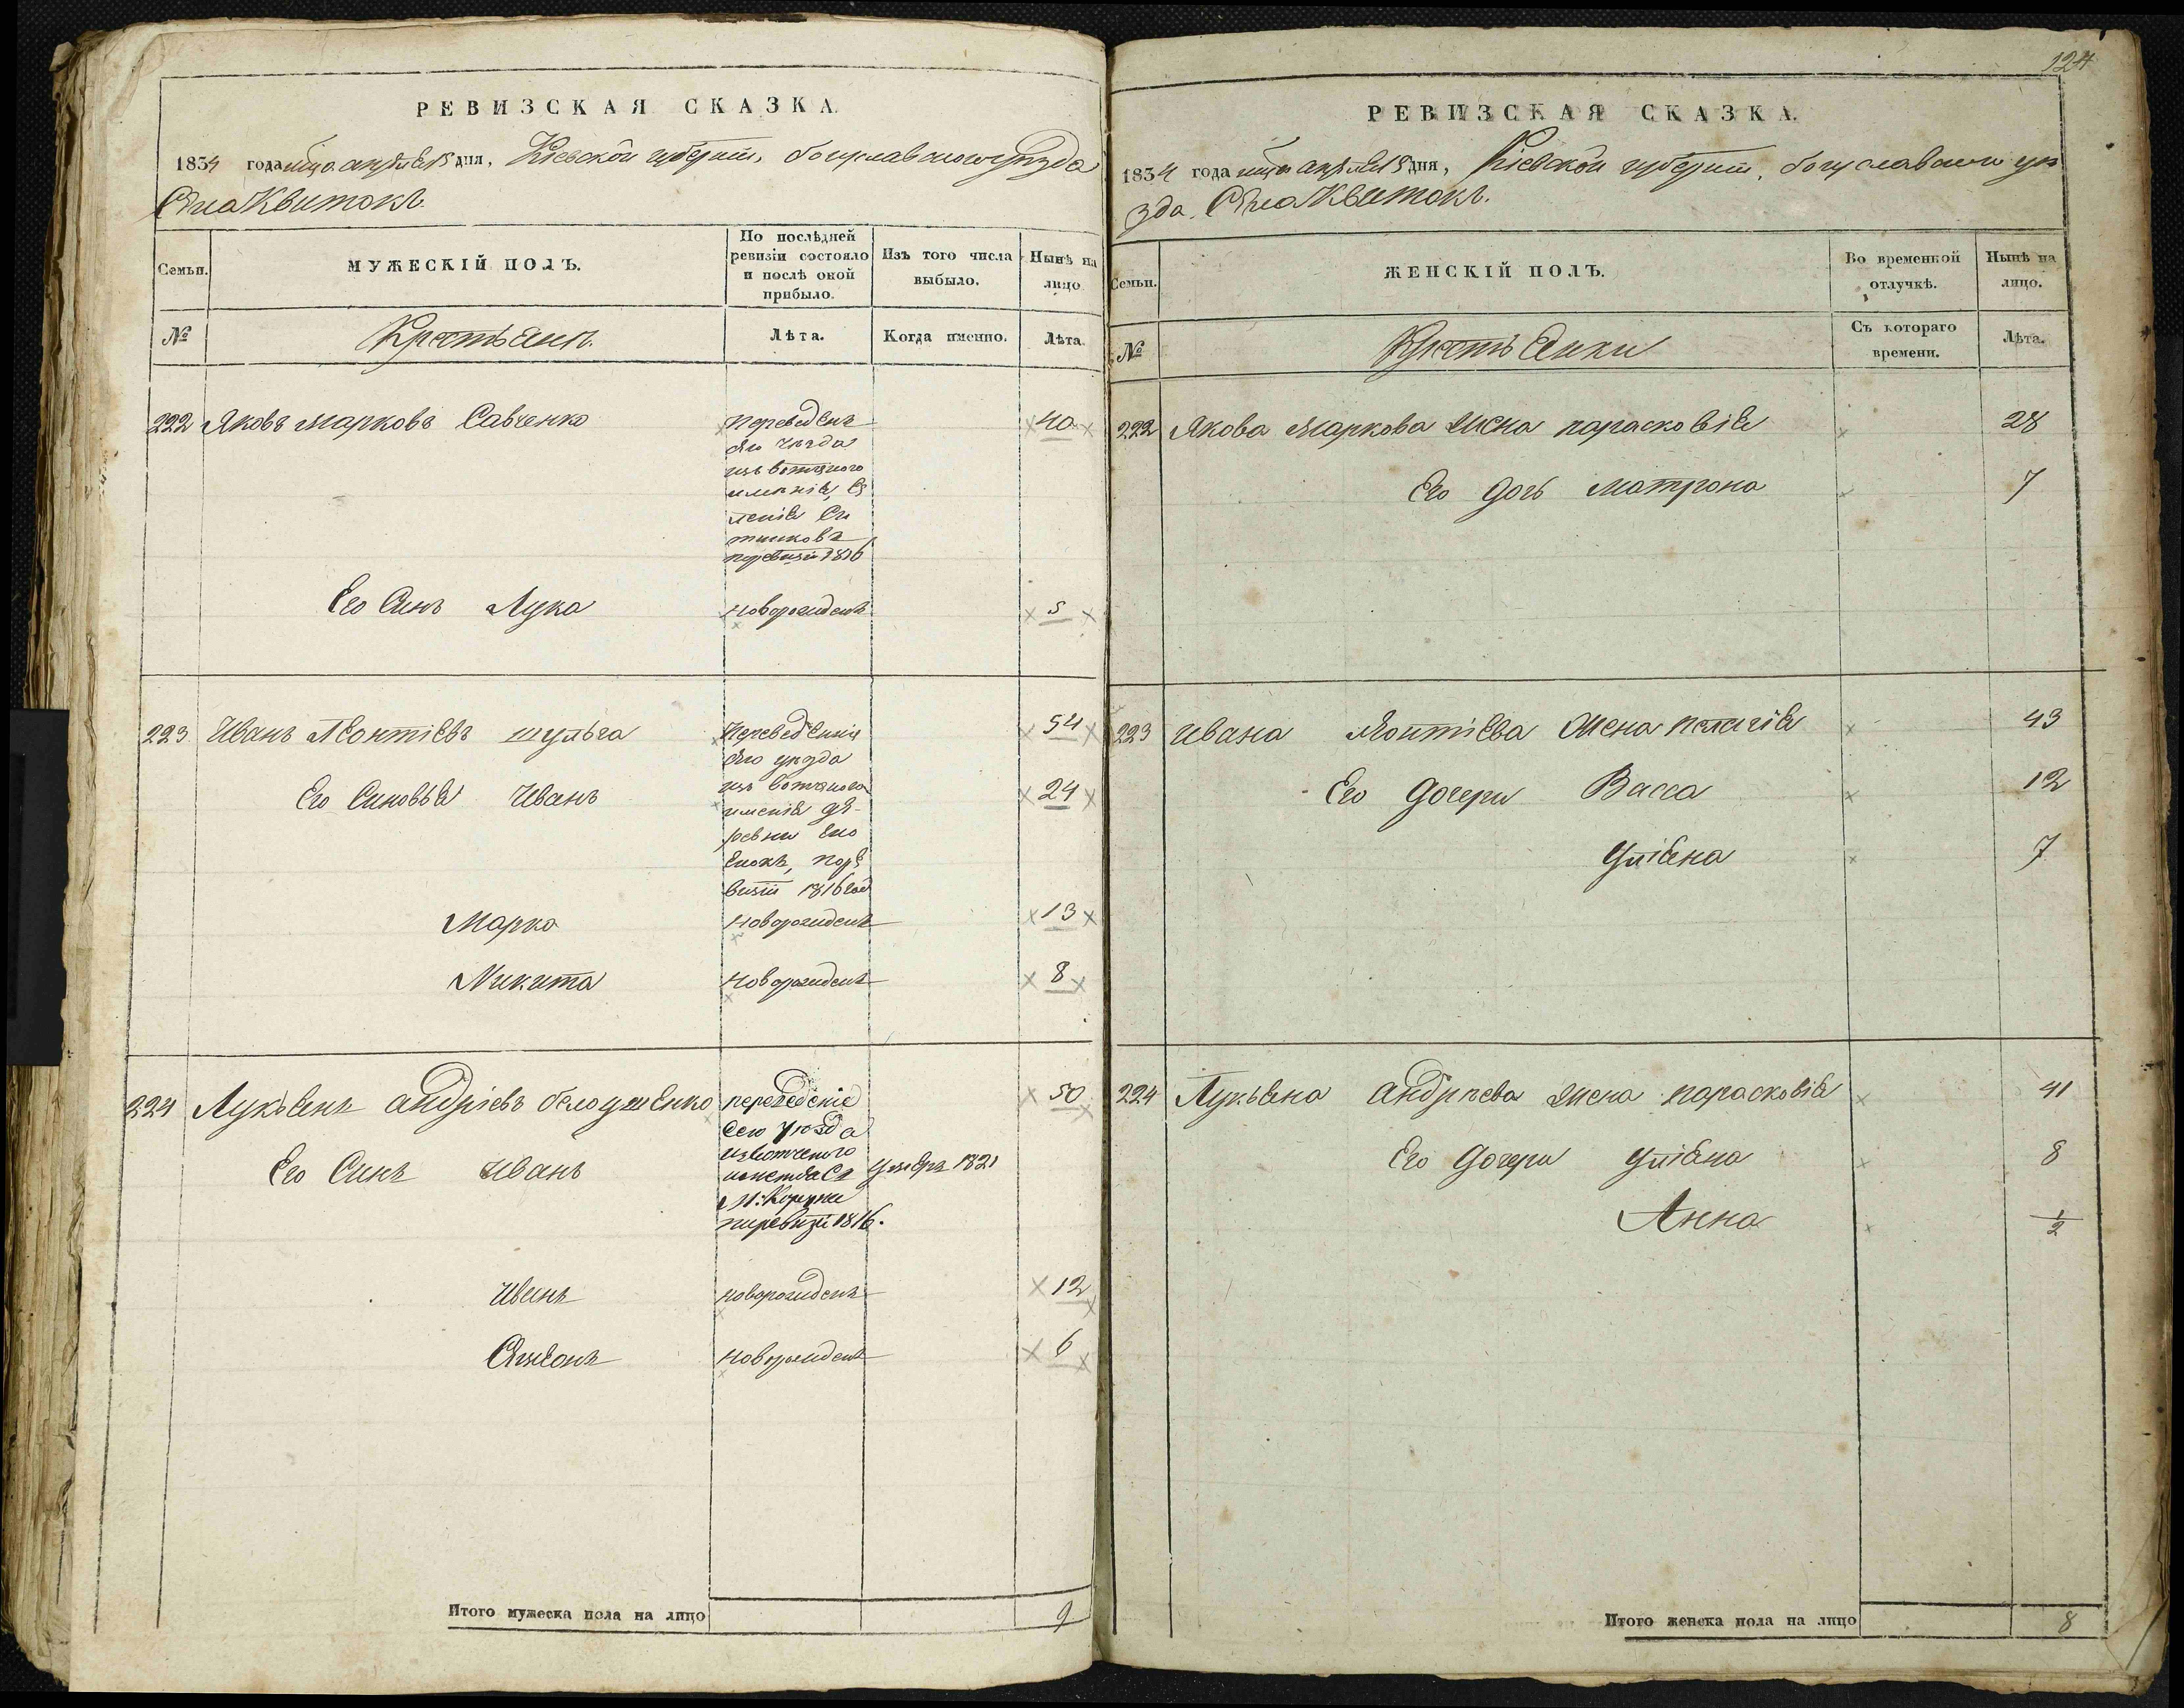 РЕВИЗСКАЯ СКАЗКА.
1834 года мца апреля 15 дня, Кіевской губерніи, богуславского уезда
Села Квитокъ.
Семьи.
МУЖЕСКІЙ ПОЛЪ.
По послѣдней ревизіи состояло и послѣ оной прибыло.
Изъ того числа выбыло.
Нынѣ на лицо
№
Крестьянъ.
Лѣта.
Когда именно.
Лѣта.
222 Яковъ Марковъ Савченко
переведенъ
40
уезда
изъ вотчиного
именія
ревизіи 1816
Его Синъ Лука новорожденъ 5
223 Иванъ Леонтіевъ шульга
Переведенніи
54
уезда
Его Синовья Иванъ
изъ вотчиного
24
именія де-
ревни
визіи 1816 год
Марко новорожденъ 13
Никита новорожденъ 8
224 Лукьянъ андріевъ белоушенко переведеніе 50
Сего уезда
Его Синъ Иванъ умеръ 1821
ревизіи 1816.
Иванъ новорожденъ 12
новорожденъ 6
Итого мужеска пола на лицо 9
124
РЕВИЗСКАЯ СКАЗКА.
1834 года мца апреля 15 дня, Кіевской губерніи, богуславского уе
зда. Села Квитокъ.
Семьи.
ЖЕНСКІЙ ПОЛЪ.
Во временной отлучкѣ.
Нынѣ на лицо.
№
Крестьянки
Съ котораго времени.
Лѣта.
222 Якова Маркова жена парасковія 28
Его дочь Матрона 7
223 Ивана Леонтіева жена пелагія 43
Его дочери Васса 12
Уліяна 7
224 Лукьяна андреева жена парасковія 41
Его дочери Уліяна 8
Анна 1/2
Итого женска пола на лицо 8